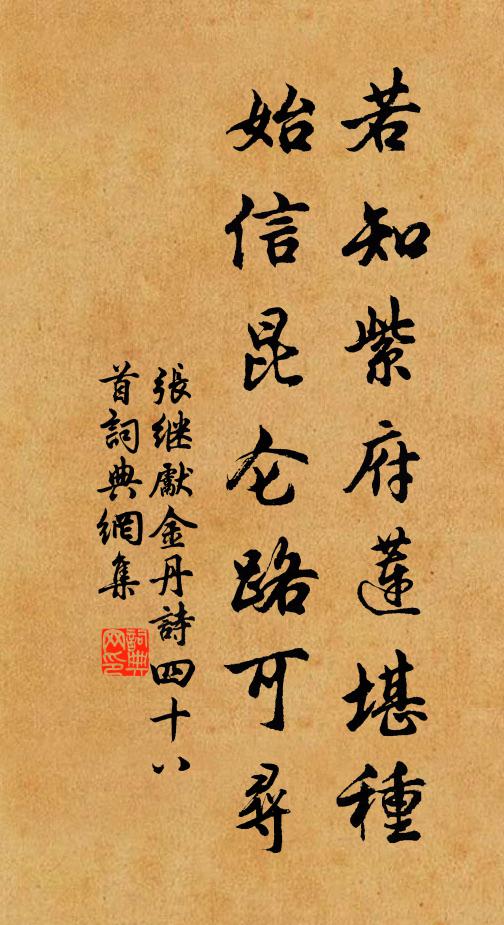 若知紫府莲堪種
始信昆仑路可尋
張继獻金丹詩四十八
首詞典網集
詞典网印